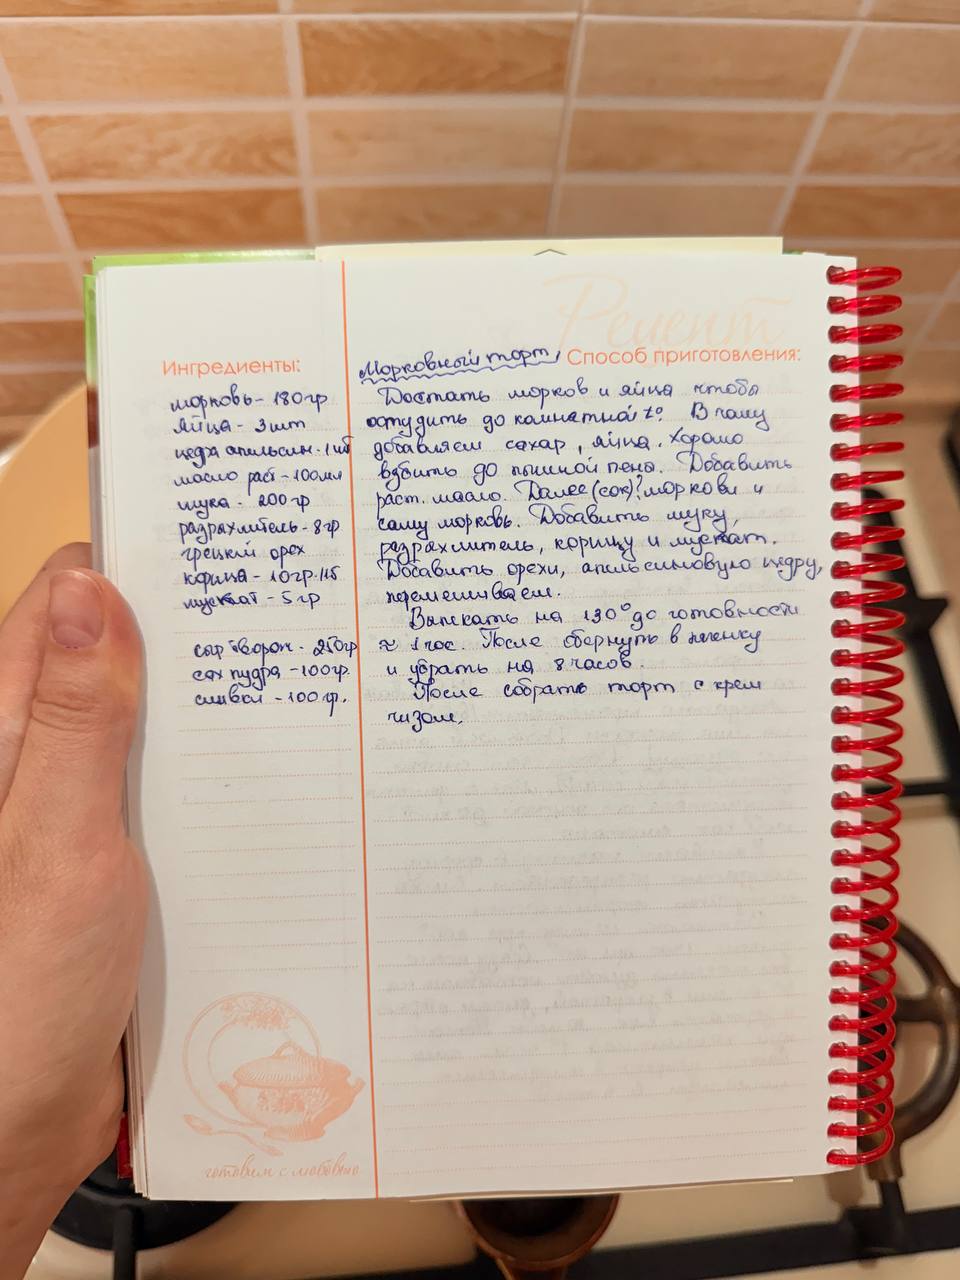 Рецепт
Ингредиенты:
морковь - 180гр
яйца - 3шт
цедра апельсин. - 1шт
масло раст - 100мл
мука - 200гр
разрыхлитель - 8гр
грецкий орех
корица - 10гр
мускат - 5гр
сыр творож. - 250гр
сах пудра - 100гр.
сливки - 100гр.
готовим с любовью
Морковный торт
Способ приготовления:
Достать морков и яйца чтобы
остудить до комнатной t°. В чашу
добавляем сахар, яйца. Хорошо
взбить до пышной пены. Добавить
раст. масло. Далее (сок)? моркови и
саму морковь. Добавить муку,
разрыхлитель, корицу и мускат.
Добавить орехи, апельсиновую цедру,
перемешиваем.
Выпекать на 130° до готовности
≈ 1 час. После обернуть в пленку
и убрать на 8 часов.
После собрать торт с крем
чизом.